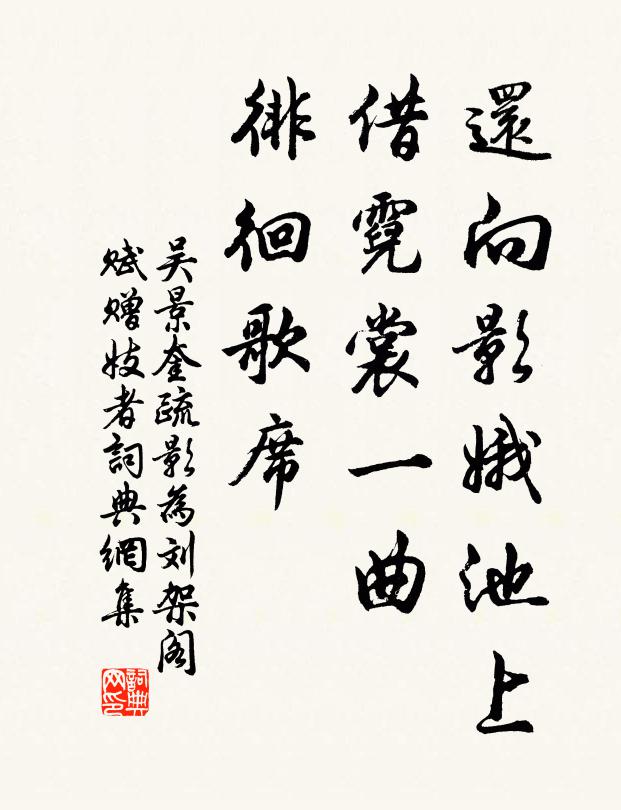 還向影娥池上
借霓裳一曲
徘徊歌席
吴景奎疏影為刘架阁
賦贈妓者詞典網集
詞典网印